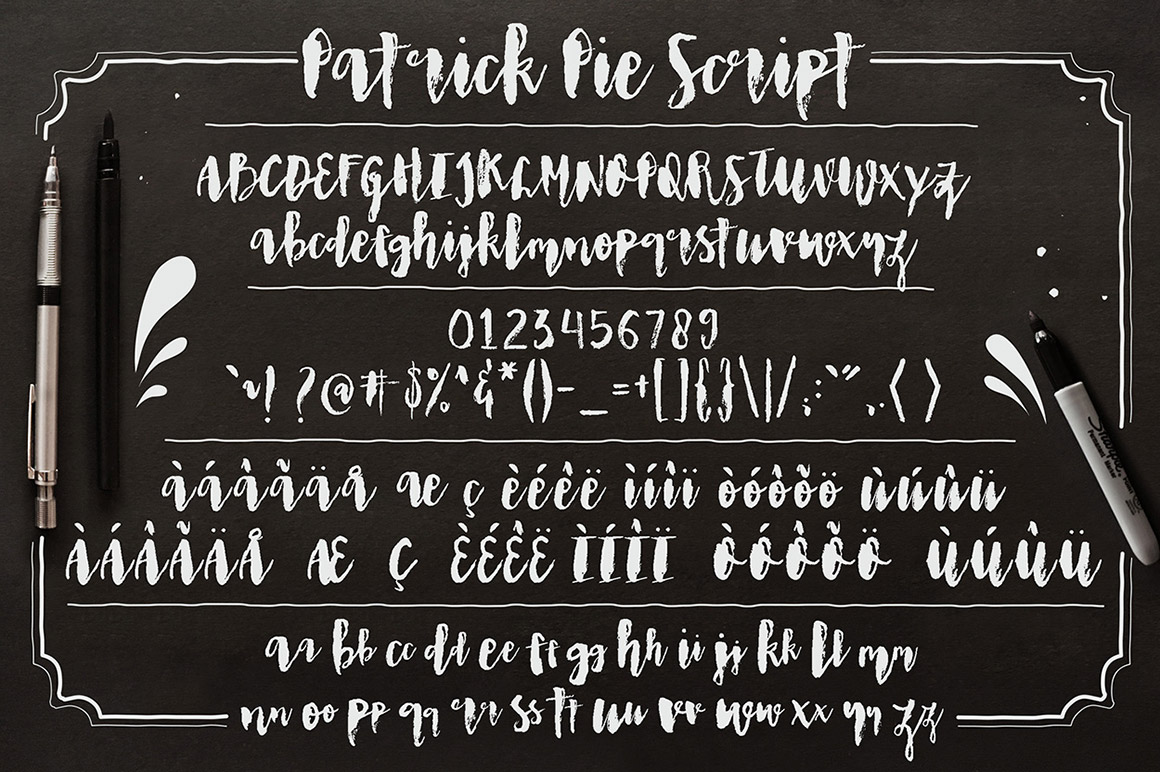 Patrick Pie Script
ABCDEFGHIJKLMNOPQRSTUVWXYZ
abcdefghijklmnopqrstuvwxyz
0123456789
`~! ?@#$%^&*()-_=+[]{}\|/;:'",.〈〉
àáâãäå æ ç èéêë ìíîï òóôõö ùúûü
ÀÁÂÃÄÅ Æ Ç ÈÉÊË ÌÍÎÏ ÒÓÔÕÖ ÙÚÛÜ
aa bb cc dd ee ff gg hh ii jj kk ll mm
nn oo pp qq rr ss tt uu vv ww xx yy zz
Sharpie